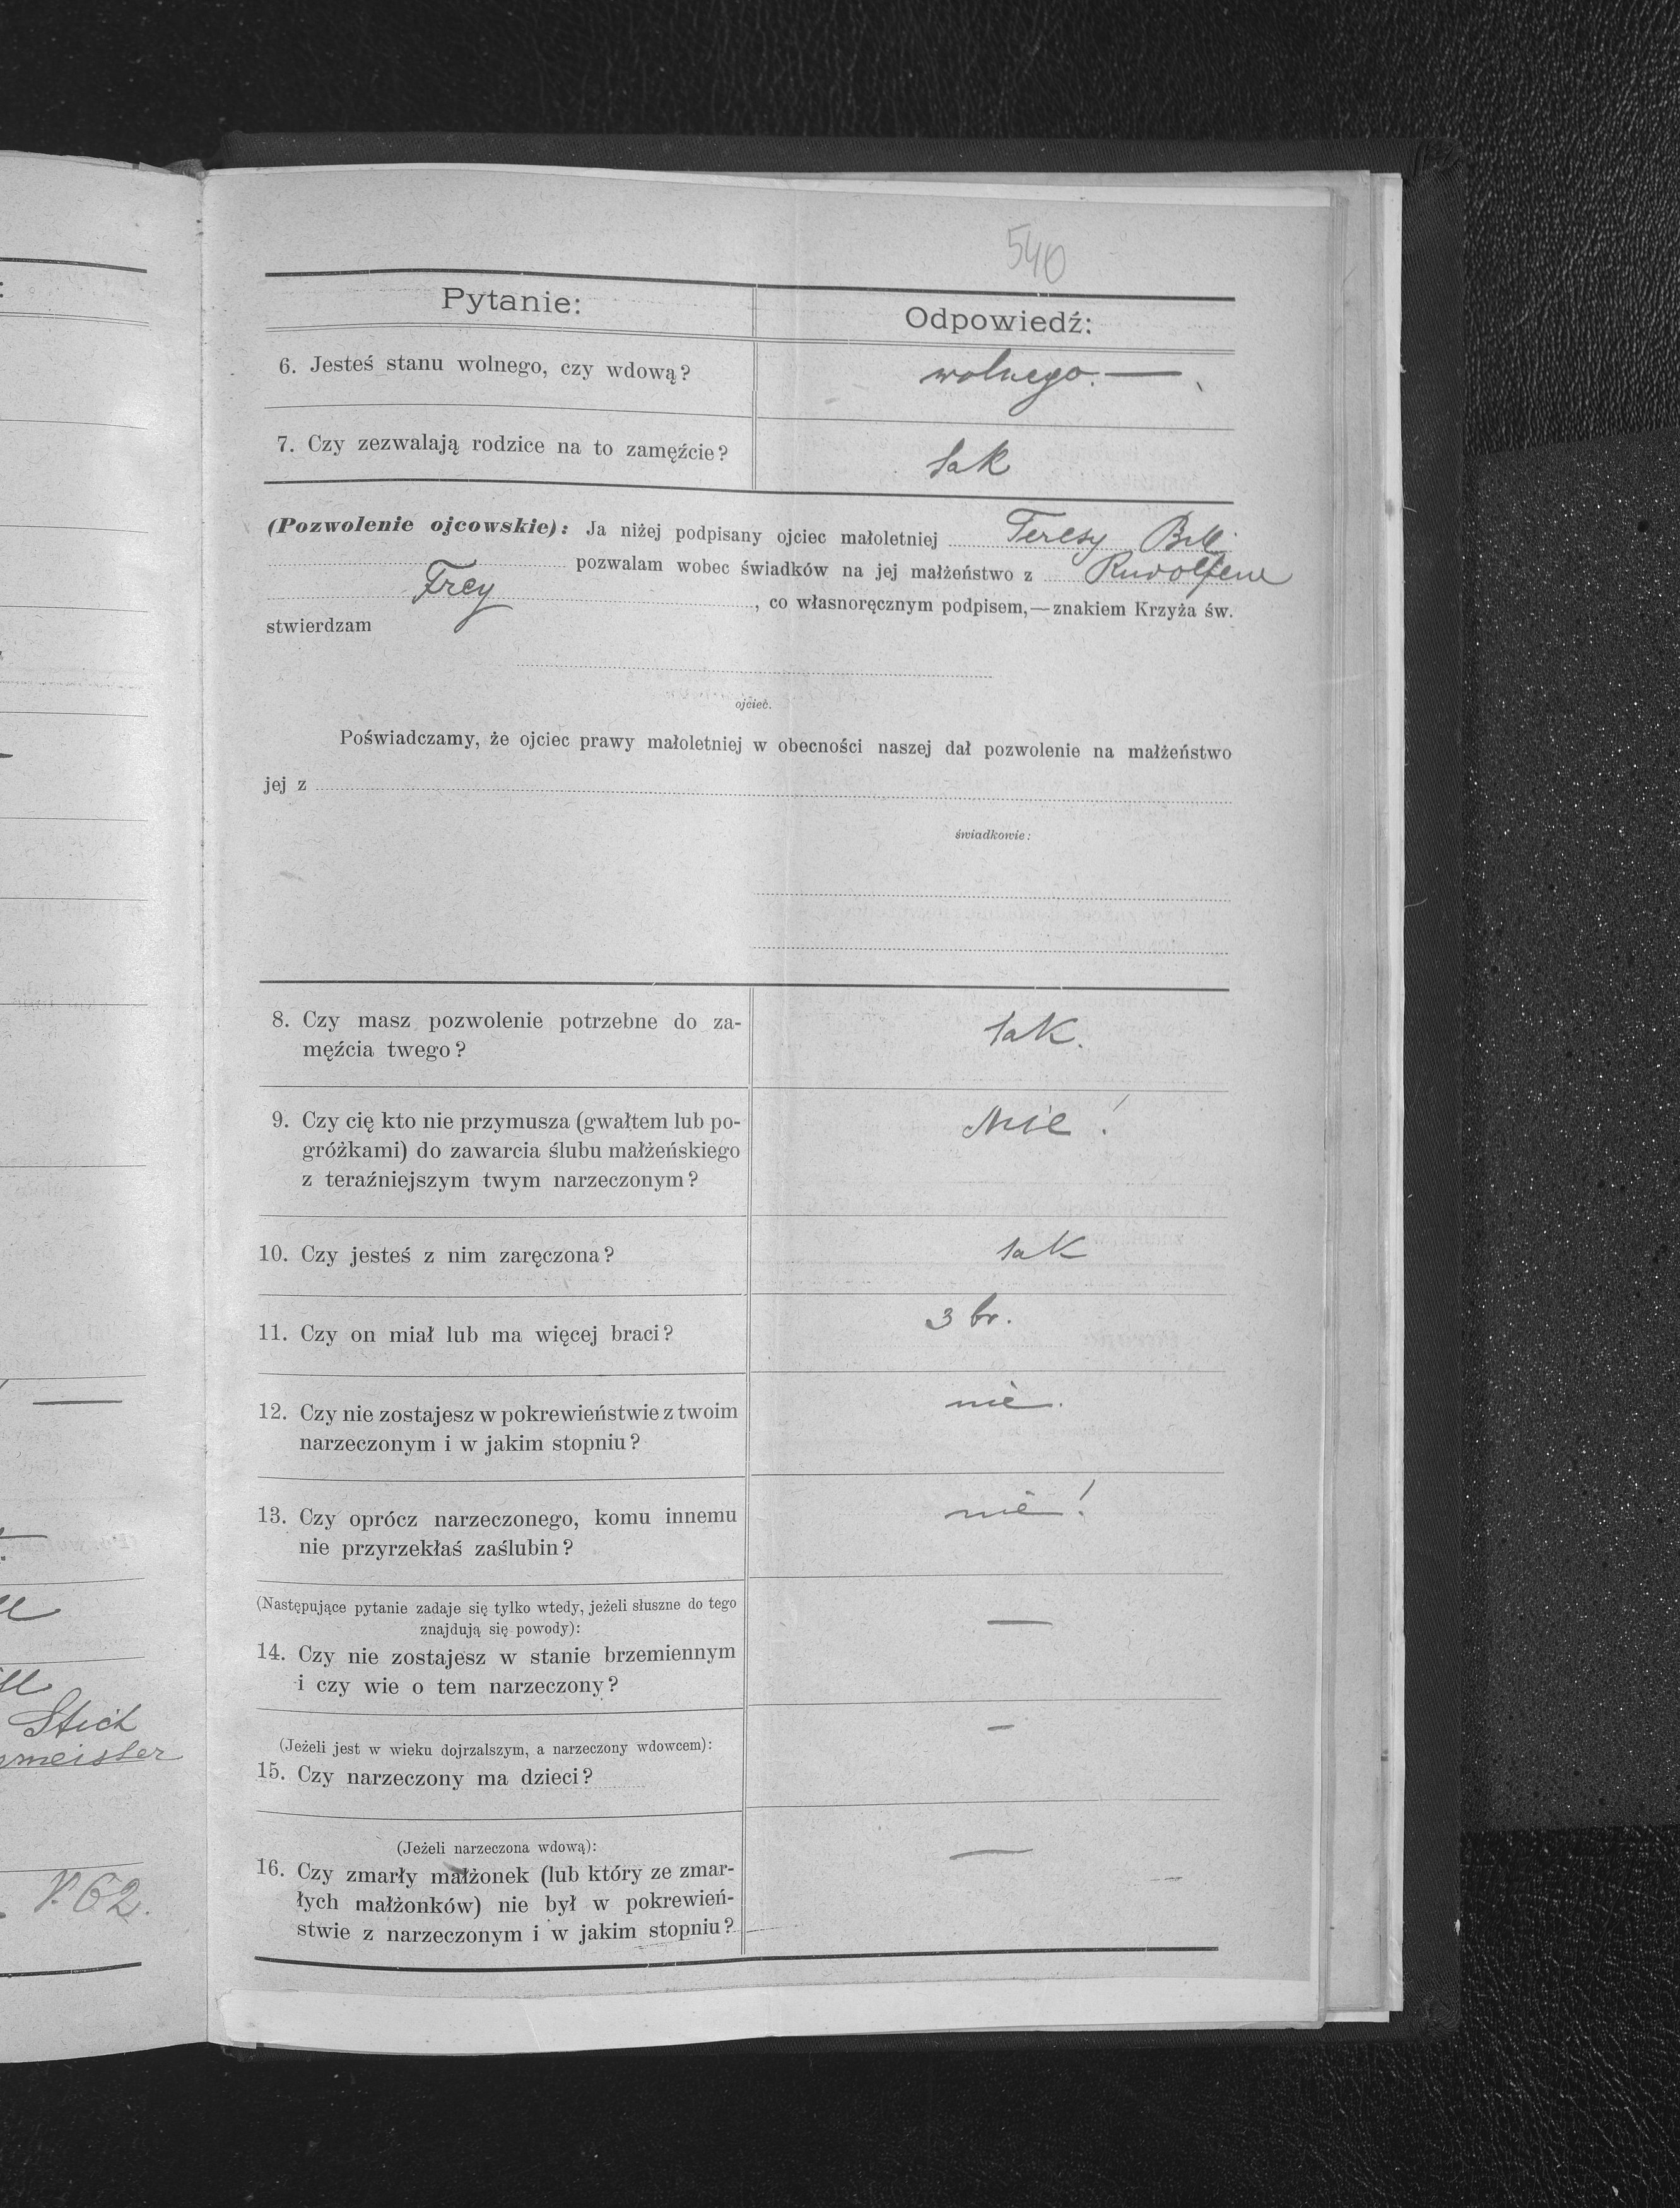 540
Pytanie:
Odpowiedź:
6. Jesteś stanu wolnego, czy wdową?
wolnego. —
7. Czy zezwalają rodzice na to zamęźcie?
tak
(Pozwolenie ojcowskie): Ja niżej podpisany ojciec małoletniej Teresy Bill
pozwalam wobec świadków na jej małżeństwo z Rudolfem
Frey , co własnoręcznym podpisem,—znakiem Krzyża św.
stwierdzam
ojciec.
Poświadczamy, że ojciec prawy małoletniej w obecności naszej dał pozwolenie na małżeństwo
jej z
świadkowie:
8. Czy masz pozwolenie potrzebne do za-
męźcia twego?
tak.
9. Czy cię kto nie przymusza (gwałtem lub po-
gróżkami) do zawarcia ślubu małżeńskiego
z teraźniejszym twym narzeczonym?
Nie!
10. Czy jesteś z nim zaręczona?
tak
11. Czy on miał lub ma więcej braci?
3 br.
12. Czy nie zostajesz w pokrewieństwie z twoim
narzeczonym i w jakim stopniu?
nie.
13. Czy oprócz narzeczonego, komu innemu
nie przyrzekłaś zaślubin?
nie!
(Następujące pytanie zadaje się tylko wtedy, jeżeli słuszne do tego
znajdują się powody):
14. Czy nie zostajesz w stanie brzemiennym
i czy wie o tem narzeczony?
—
(Jeżeli jest w wieku dojrzalszym, a narzeczony wdowcem):
15. Czy narzeczony ma dzieci?
—
(Jeżeli narzeczona wdową):
16. Czy zmarły małżonek (lub który ze zmar-
łych małżonków) nie był w pokrewień-
stwie z narzeczonym i w jakim stopniu?
—
Stich
meister
62.